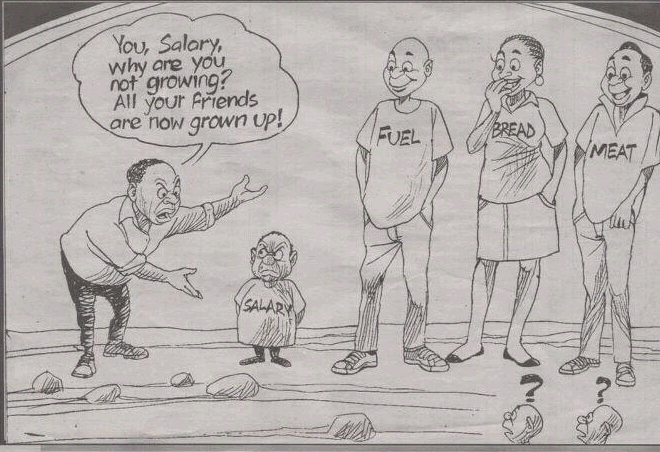 You, Salary,
why are you
not growing?
All your friends
are now grown up!
FUEL
BREAD
MEAT
SALARY
?
?